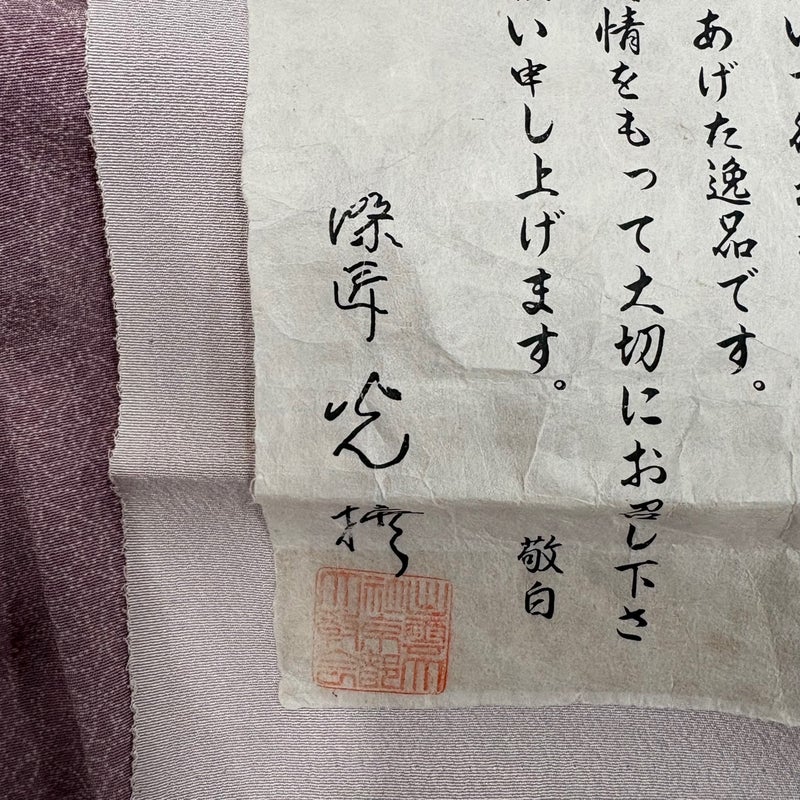 あげた逸品です。
情をもって大切にお召し下さ
い申し上げます。
敬白
染匠 光